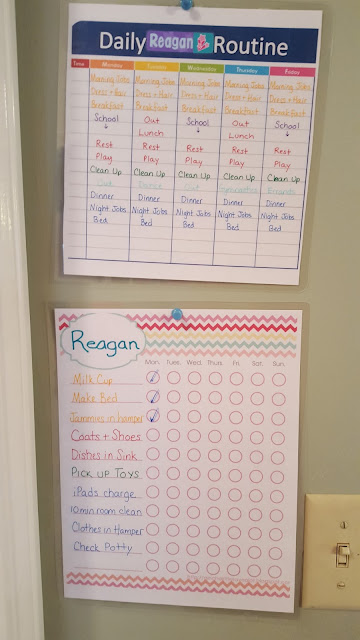 Daily Reagan Routine
Time Monday Tuesday Wednesday Thursday Friday
Morning Jobs Morning Jobs Morning Jobs Morning Jobs Morning Jobs
Dress + Hair Dress + Hair Dress + Hair Dress + Hair Dress + Hair
Breakfast Breakfast Breakfast Breakfast Breakfast
School Out School Out School
Lunch Lunch
Rest Rest Rest Rest Rest
Play Play Play Play Play
Clean Up Clean Up Clean Up Clean Up Clean Up
Out Dance Out Gymnastics Errands
Dinner Dinner Dinner Dinner Dinner
Night Jobs Night Jobs Night Jobs Night Jobs Night Jobs
Bed Bed Bed Bed Bed
Reagan
Mon. Tues. Wed. Thurs. Fri. Sat. Sun.
Milk Cup
Make Bed
Jammies in hamper
Coats + Shoes
Dishes in Sink
Pick up Toys
iPads charge
10 min room clean
Clothes in Hamper
Check Potty